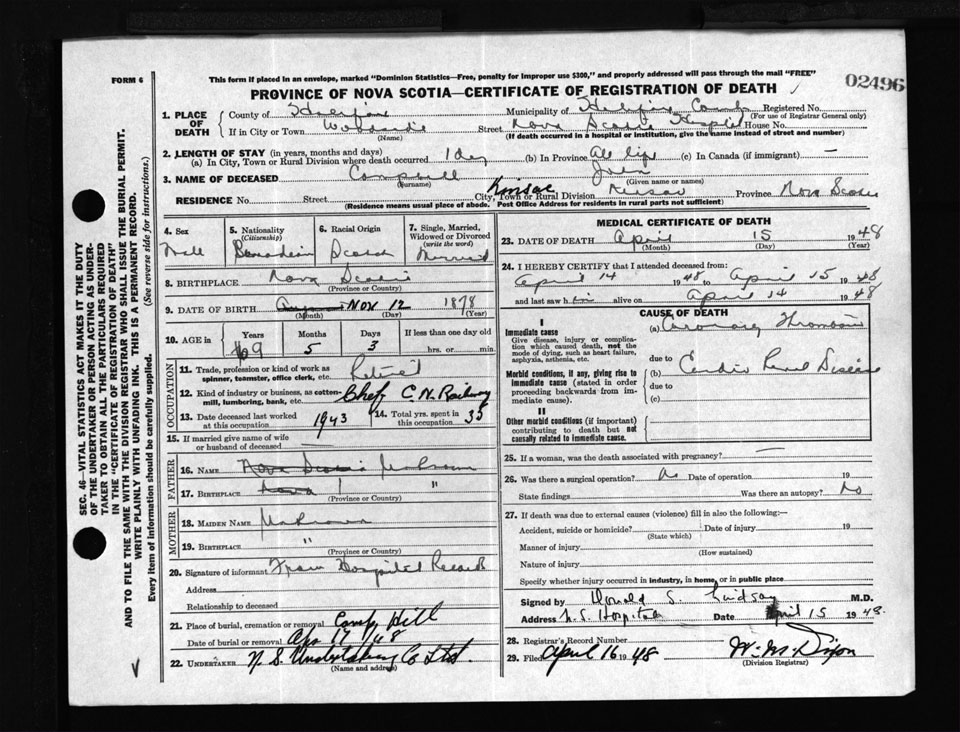 FORM 6
This form if placed in an envelope, marked "Dominion Statistics—Free, penalty for improper use $300," and properly addressed will pass through the mail "FREE"
02496
PROVINCE OF NOVA SCOTIA—CERTIFICATE OF REGISTRATION OF DEATH
1. PLACE OF DEATH
County of Halifax
Municipality of Halifax County Registered No.
(For use of Registrar General only)
If in City or Town
Street Nova Scotia Hospital House No.
(Name)
(If death occurred in a hospital or institution, give the name instead of street and number)
2. LENGTH OF STAY (in years, months and days)
(a) In City, Town or Rural Division where death occurred 1 day (b) In Province All life (c) In Canada (if immigrant) —
3. NAME OF DECEASED Campbell John
(Surname) (Given name or names)
RESIDENCE No. Street Kinsac City, Town or Rural Division Province Nova Scotia
(Residence means usual place of abode. Post Office Address for residents in rural parts not sufficient)
4. Sex
Male
5. Nationality
(Citizenship)
Canadian
6. Racial Origin
Scotch
7. Single, Married, Widowed or Divorced
(write the word)
Married
8. BIRTHPLACE Nova Scotia
(Province or Country)
9. DATE OF BIRTH August Nov 12 1878
(Month) (Day) (Year)
10. AGE in
Years Months Days If less than one day old
69 5 3 hrs. or min.
OCCUPATION
11. Trade, profession or kind of work as spinner, teamster, office clerk, etc. Retired
12. Kind of industry or business, as cotton-mill, lumbering, bank, etc. Chef C.N. Railway
13. Date deceased last worked at this occupation 1943
14. Total yrs. spent in this occupation 35
15. If married give name of wife or husband of deceased
FATHER
16. NAME Nova Scotia Unknown
17. BIRTHPLACE Nova "
(Province or Country)
MOTHER
18. MAIDEN NAME Unknown
19. BIRTHPLACE "
(Province or Country)
20. Signature of informant From Hospital Records
Address
Relationship to deceased
21. Place of burial, cremation or removal Camp Hill
Date of burial or removal Apr 17/48
22. UNDERTAKER N.S. Undertaking Co Ltd.
(Name and address)
MEDICAL CERTIFICATE OF DEATH
23. DATE OF DEATH April 15 1948
(Month) (Day) (Year)
24. I HEREBY CERTIFY that I attended deceased from:
April 14 1948 to April 15 1948
and last saw him alive on April 14 1948
CAUSE OF DEATH
I
Immediate cause
Give disease, injury or complication which caused death, not the mode of dying, such as heart failure, asphyxia, asthenia, etc.
(a) Coronary Thrombosis
due to
Morbid conditions, if any, giving rise to immediate cause (stated in order proceeding backwards from immediate cause).
(b) Cardio Renal Disease
due to
(c)
II
Other morbid conditions (if important) contributing to death but not causally related to immediate cause.
25. If a woman, was the death associated with pregnancy? —
26. Was there a surgical operation? No Date of operation 19
State findings Was there an autopsy? No
27. If death was due to external causes (violence) fill in also the following:—
Accident, suicide or homicide? Date of injury 19
(State which)
Manner of injury
(How sustained)
Nature of injury
Specify whether injury occurred in industry, in home, or in public place
Signed by Donald S. Lindsay M.D.
Address N.S. Hospital Date April 15 1948.
28. Registrar's Record Number
29. Filed April 16 1948 W. M. Dixon
(Division Registrar)
SEC. 46—VITAL STATISTICS ACT MAKES IT THE DUTY OF THE UNDERTAKER OR PERSON ACTING AS UNDERTAKER TO OBTAIN ALL THE PARTICULARS REQUIRED IN THE "CERTIFICATE OF REGISTRATION OF DEATH" AND TO FILE THE SAME WITH THE DIVISION REGISTRAR WHO SHALL ISSUE THE BURIAL PERMIT.
WRITE PLAINLY WITH UNFADING INK. THIS IS A PERMANENT RECORD.
Every item of information should be carefully supplied. (See reverse side for instructions.)